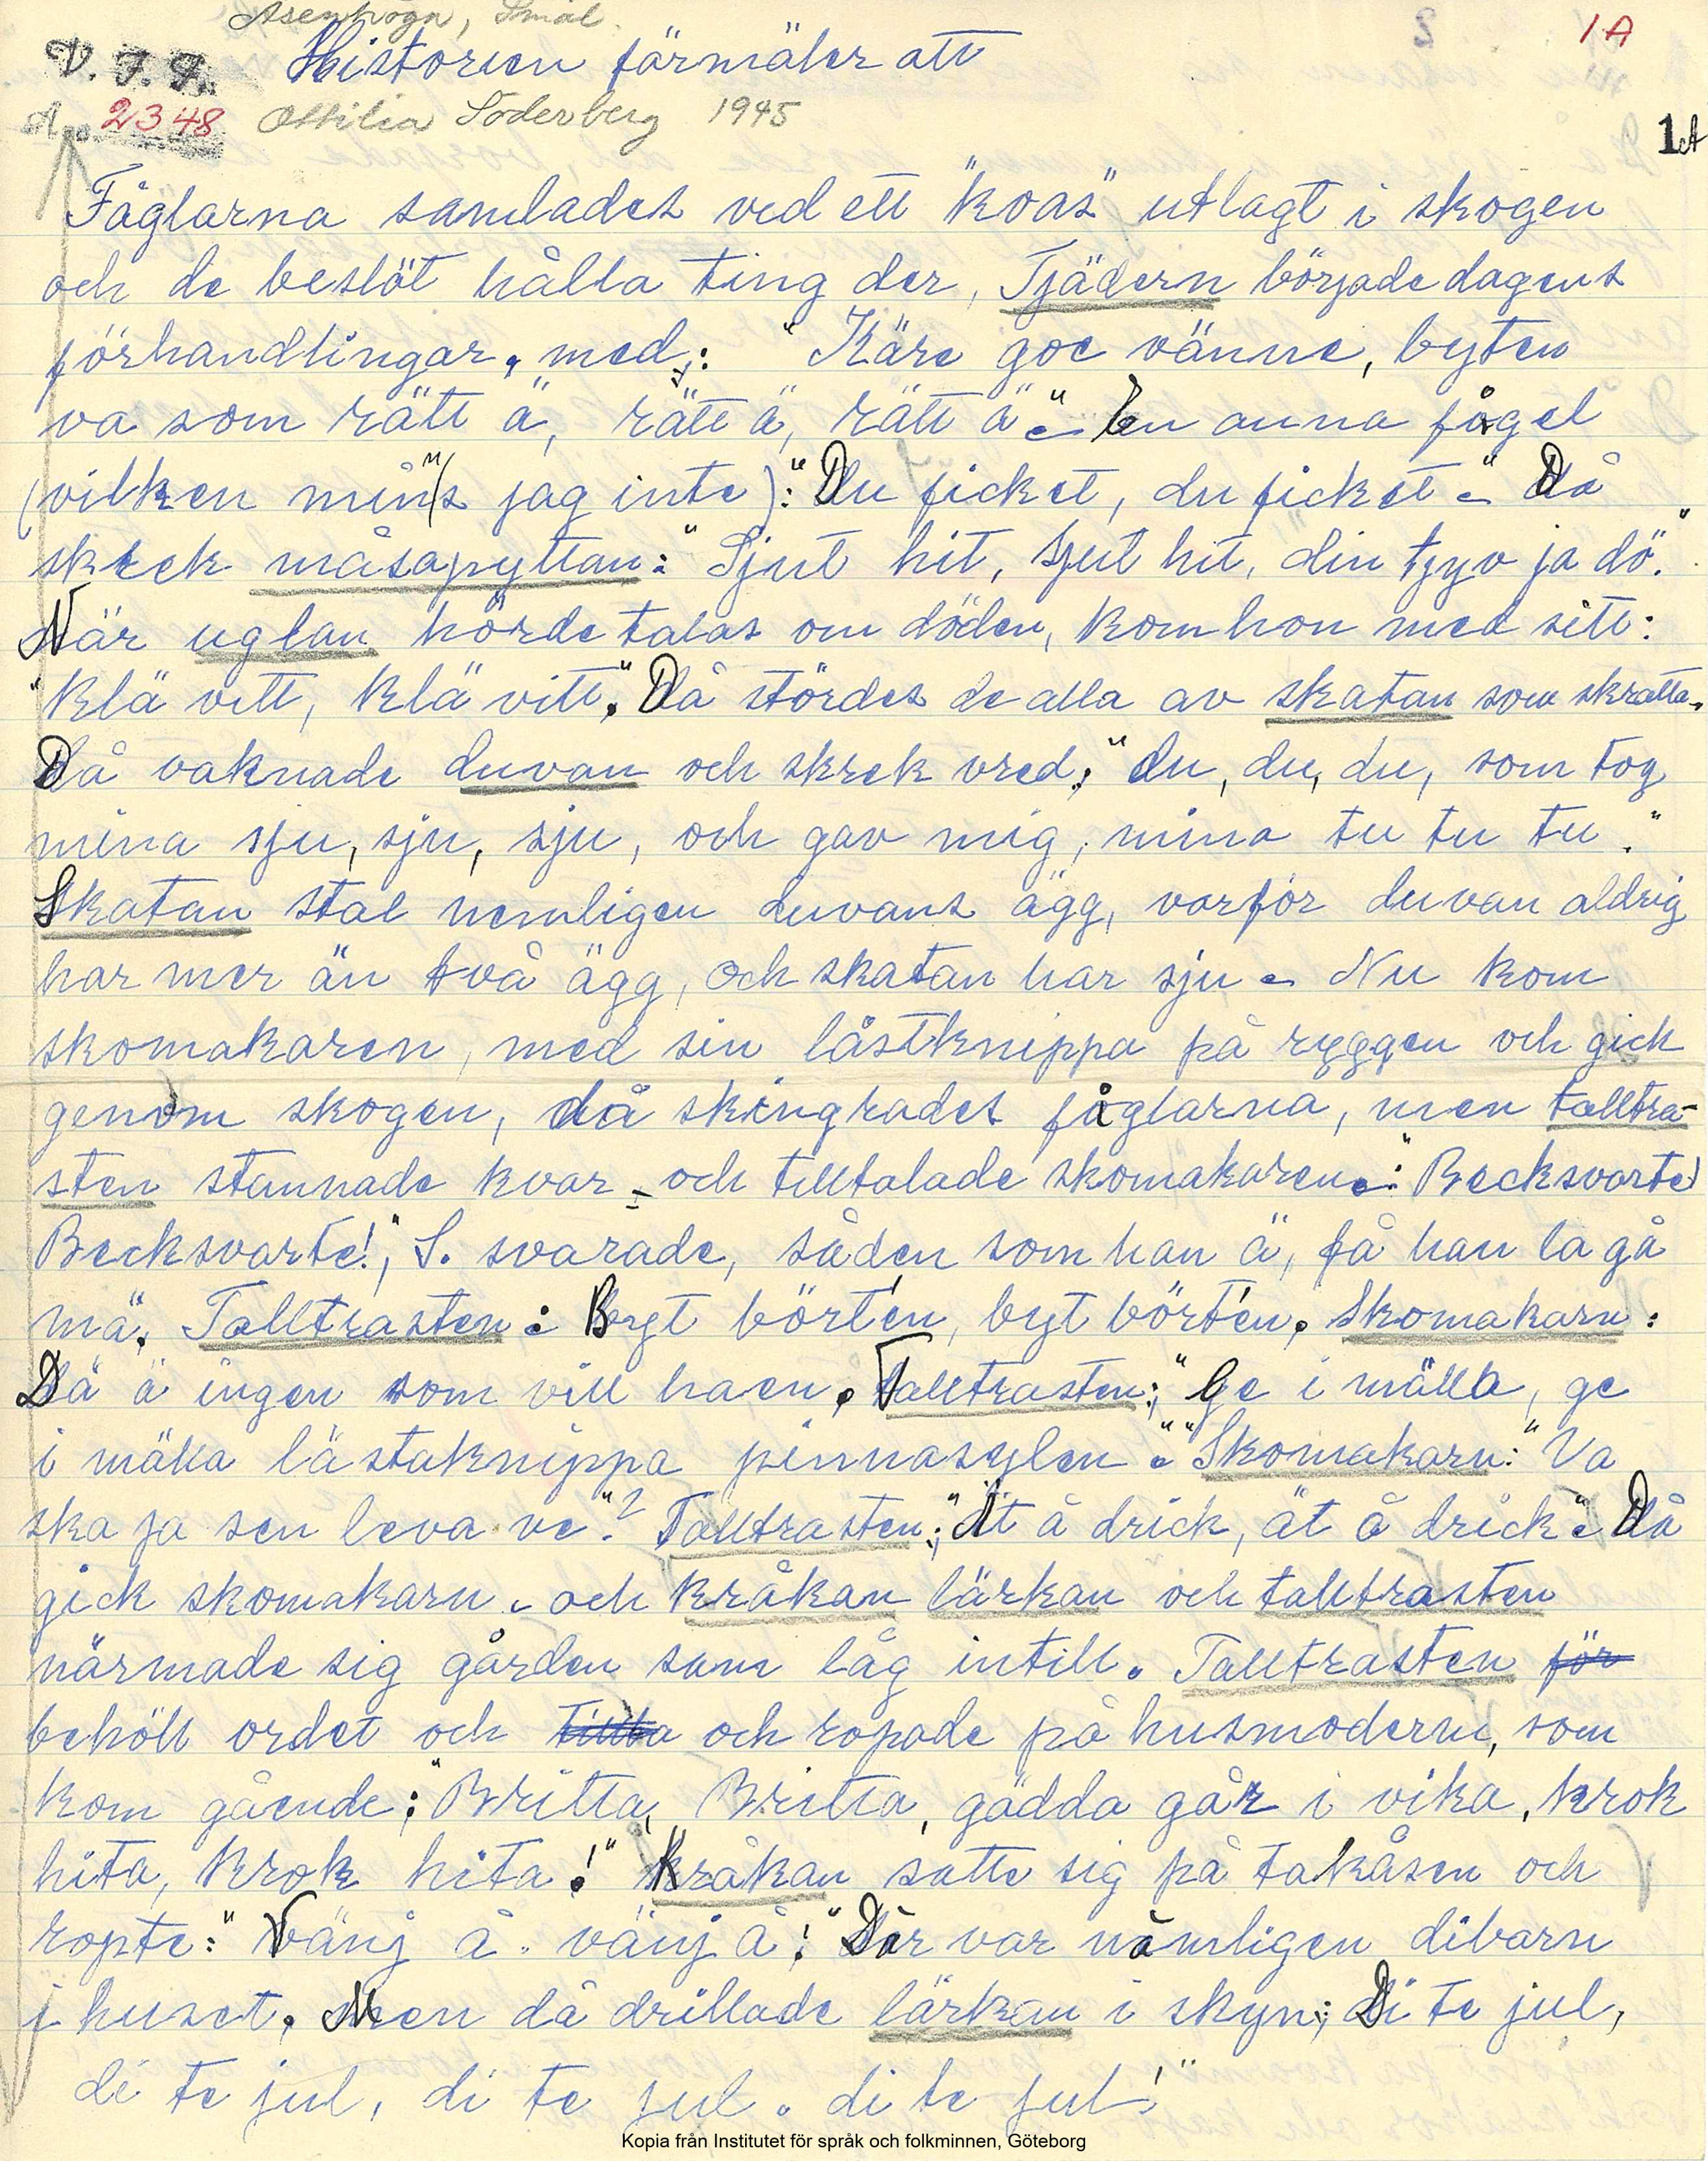 Asenhöga, Smål.
1A
V. F. F. Historien förmäler att
A. 2348 Ottilia Söderberg 1945
1A
Fåglarna samlades ved ett "koas" utlagt i skogen
och de beslöt hålla ting der, Tjädern började dagens
förhandlingar, med: "Käre goe vänne, byten
va som rätt ä, rätt ä, rätt ä" - En anna fågel
(vilken minns jag inte): "Du ficket, du ficket -" Då
skrek måsapyttan: "Sjut hit, sjut hit, din tjyv ja dö."
När uglan hörde talas om döden, kom hon med sitt:
"klä vitt, klä vitt". Då stördes de alla av skatan som skratta.
Då vaknade duvan och skrek vred: "du, du, du, som tog
mina sju, sju, sju, och gav mig, mina tu tu tu."
Skatan stal nemligen duvans ägg, varför duvan aldrig
har mer än två ägg, och skatan har sju - Nu kom
skomakaren, med sin lästknippa på ryggen och gick
genom skogen, då skingrades fåglarna, men talltra-
sten stannade kvar - och tilltalade skomakaren: "Becksvarte
Becksvarte!", S. svarade, såden som han ä, få han la gå
mä. Talltrasten: Byt börten, byt börten. Skomakarn:
Dä ä ingen som vill haen. Talltrasten: "Ge i mälla, ge
i mäka lästaknippa pinnasylen." "Skomakarn: "Va
ska ja sen leva ve"? Talltrasten: "Ät å drick, ät å drick" Då
gick skomakarn - och kråkan lärkan och talltrasten
närmade sig gården som låg intill. Talltrasten för
behöll ordet och och ropade på husmodern, som
kom gående: "Britta, Britta, gädda går i vika, krok
hita, krok hita!" Kråkan satte sig på takåsen och
ropte: "Vänj å. vänj å!" Där var nämligen dibarn
i huset. Men då drillade lärkan i skyn: Di te jul,
di te jul, di te jul. di te jul!"
Kopia från Institutet för språk och folkminnen, Göteborg